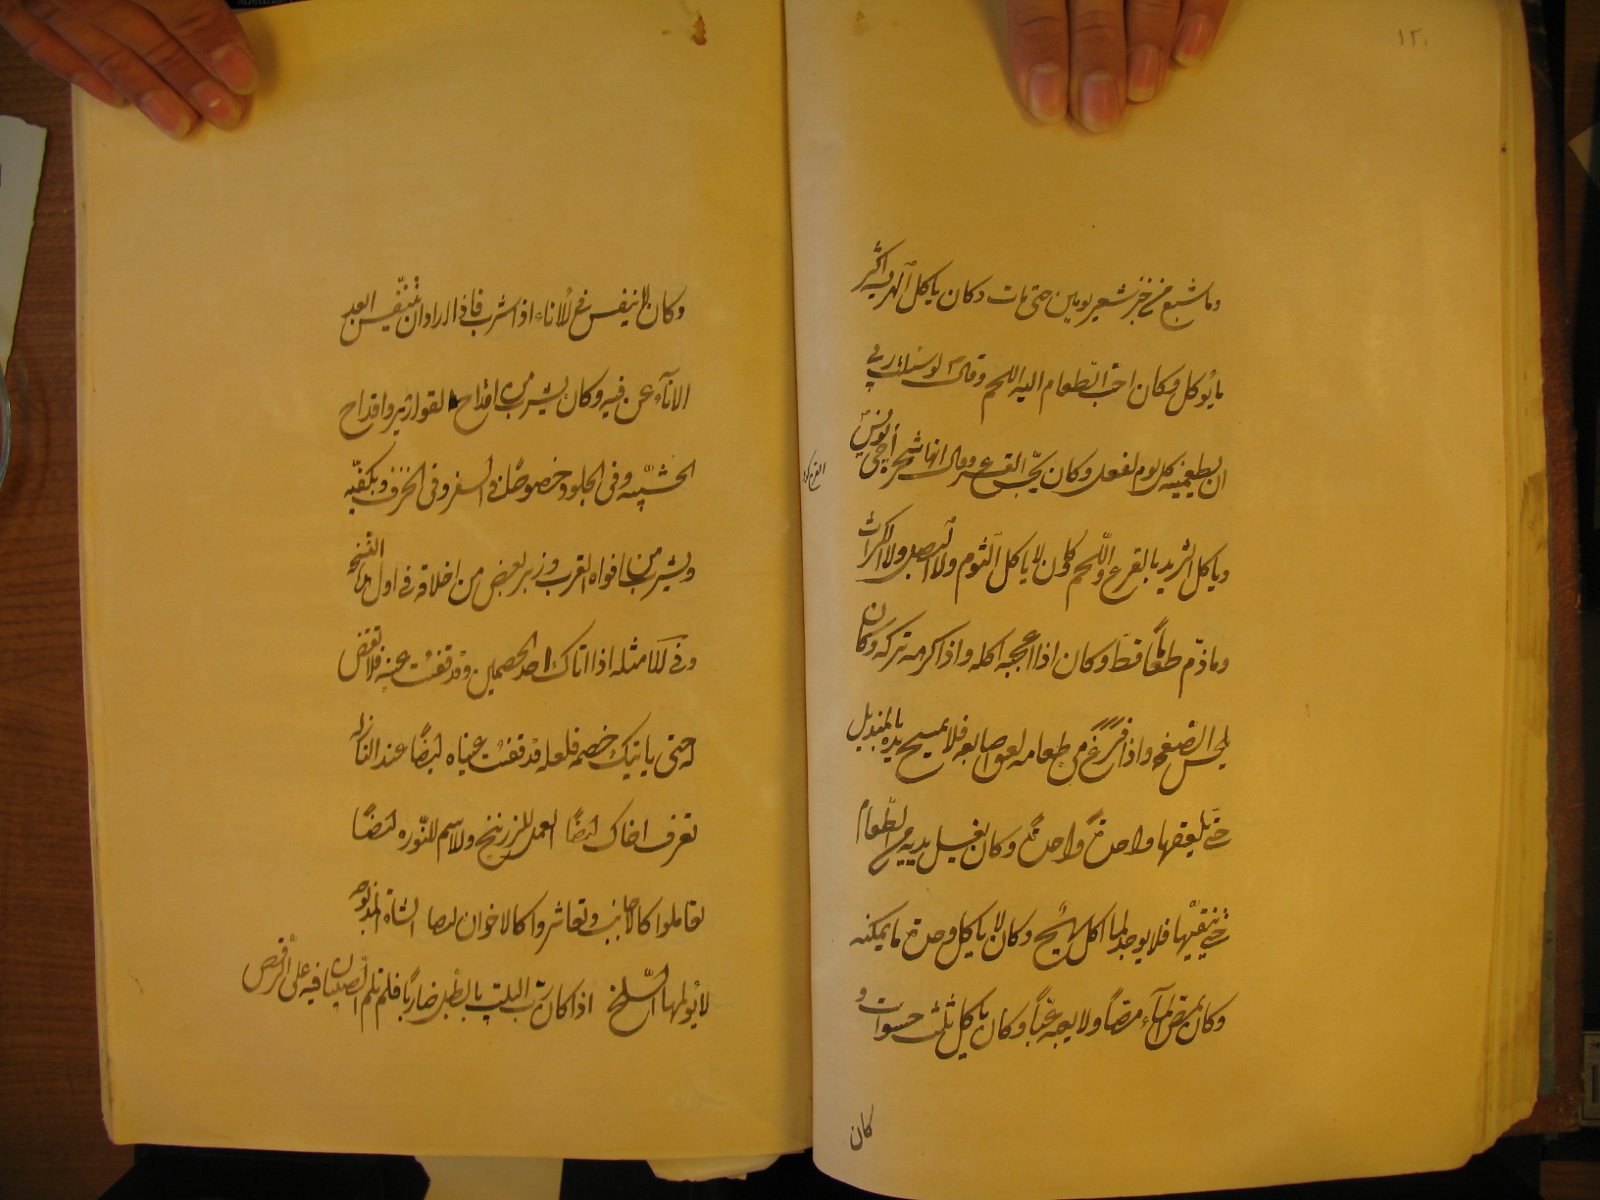 ١٢٠
وما شبع من خبز شعير يومين حتى مات وكان ياكل الهريسه اكثر
ما يؤكل وكان احب الطعام اليه اللحم وقال لو سئلت ربي
ان يطعمنيه كل يوم لفعل وكان يحب القرع وقال انها شجرة أخي يونس
القرع كدو
وياكل الثريد بالقرع واللحم كان لا ياكل الثوم ولا البصل ولا الكراث
وما ذم طعاماً قط وكان اذا اعجبه اكله واذا كرهه تركه وكان
يلحس الصفحه واذا فرغ من طعامه لعق اصابعه فلا يمسح يده بالمنديل
حتى يلعقها واحدة واحدة وكان يغسل يديه من الطعام
حتى ينقيها فلا يوجد لما اكل ريح وكان لا ياكل وحده ما يمكنه
وكان يمص المآء مصاً ولا يعبه عباً وكان ياكل ثلث حسوات و
كان
وكان لا يتنفس في الاناء اذا شرب فاذا اراد ان يتنفس ابعد
الاناء عن فيه وكان يشرب من اقداح القوارير واقداح
الخشبيه وفي الجلود خصوصا في السفر وفي الخزف وبكفيه
ويشرب من افواه القرب وزبر بعض من اخلاقه في اول هذا النسخه
وفي امثله اذا اتاك احد الخصمين وقد فقئت عينه فلا تقض
له حتى ياتيك خصمه فلعله قد فقئت عيناه ايضاً عند النازله
تعرف اخاك ايضاً العمل للزرنيخ والاسم للنوره ايضاً
تعاملوا كالاجانب وتعاشروا كالاخوان ايضا الشاه المذبوحه
لا يولمها السلخ اذا كان رب البيت بالطبل ضارباً فلا تلم الصبيان فيه على الرقص